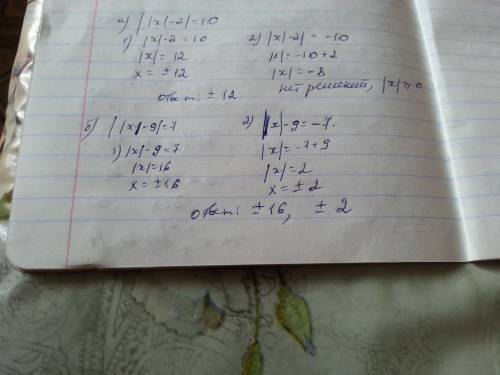 а) ||x|-2|=10
1) |x|-2=10 2) |x|-2|=-10
|x|=12 |x|=-10+2
x=±12 |x|=-8
нет решений, |x|≥0
ответ: ±12
б) ||x|-9|=7 2) |x|-9=-7.
1) |x|-9=7 |x|=-7+9
|x|=16 |x|=2
x=±16 x=±2
ответ: ±16, ±2